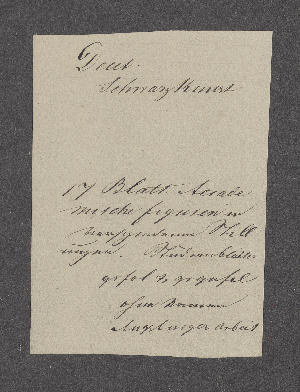 Deut.
Schwarz Kunst
17 Blatt Acade
mische figuren in
verschiedenen Stell
ungen. Studienblätter
ohne Namen
Augsburger Arbeit